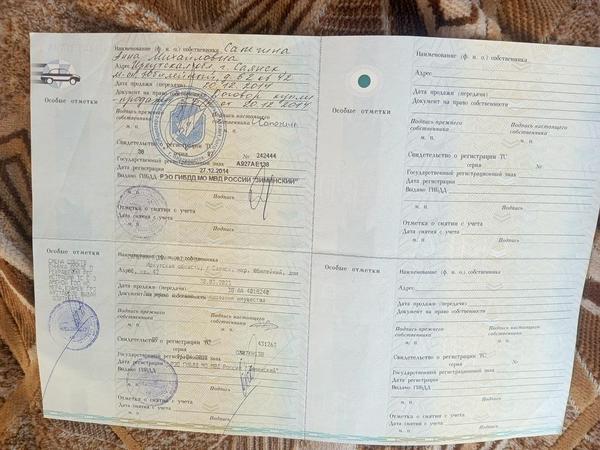 Наименование (ф. и. о.) собственника Сапегина
Анна Михайловна
Адрес Иркутская обл г. Саянск
м-он Юбилейный д. 62 кв 42
Дата продажи (передачи) 20.12.2014
Документ на право собственности Договор купли
продажи от 20.12.2014
Особые отметки
Подпись прежнего собственника
Подпись настоящего собственника
м. п.
м. п.
Свидетельство о регистрации ТС
серия 38 № 242444
Государственный регистрационный знак А927АЕ138
Дата регистрации 27.12.2014
Выдано ГИБДД РЭО ГИБДД МО МВД РОССИИ "ЗИМИНСКИЙ"
м. п.
Подпись
Отметка о снятии с учета
Дата снятия с учета
м. п.
Подпись
Наименование (ф. и. о.) собственника
Адрес
Дата продажи (передачи)
Документ на право собственности
Особые отметки
Подпись прежнего собственника
Подпись настоящего собственника
м. п.
м. п.
Свидетельство о регистрации ТС
серия №
Государственный регистрационный знак
Дата регистрации
Выдано ГИБДД
м. п.
Подпись
Отметка о снятии с учета
Дата снятия с учета
м. п.
Подпись
Особые отметки
Наименование (ф. и. о.) собственника
Иркутская область, г Саянск, мкр. Юбилейный, дом
Адрес
Дата продажи (передачи)
Документ на право собственности
Подпись прежнего собственника
Подпись настоящего собственника
м. п.
м. п.
Свидетельство о регистрации ТС
серия 431263
Государственный регистрационный знак
Дата регистрации
Выдано ГИБДД РЭО ГИБДД МО МВД России "Зиминский"
м. п.
Подпись
Отметка о снятии с учета
Дата снятия с учета
м. п.
Подпись
Особые отметки
Наименование (ф. и. о.) собственника
Адрес
Дата продажи (передачи)
Документ на право собственности
Подпись прежнего собственника
Подпись настоящего собственника
м. п.
м. п.
Свидетельство о регистрации ТС
серия №
Государственный регистрационный знак
Дата регистрации
Выдано ГИБДД
м. п.
Подпись
Отметка о снятии с учета
Дата снятия с учета
м. п.
Подпись